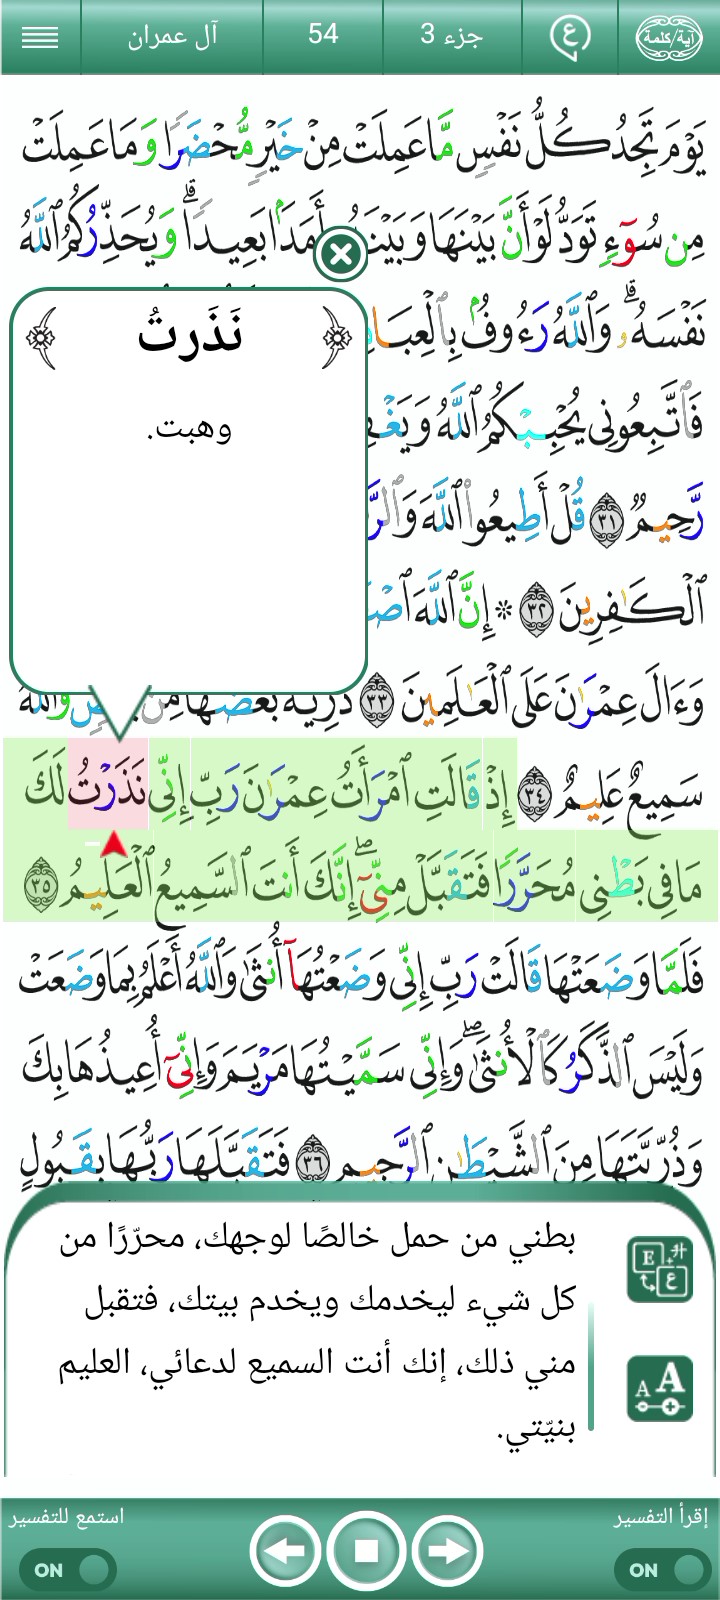 آية/كلمة
ع
جزء 3
54
آل عمران
يَوْمَ تَجِدُ كُلُّ نَفْسٍ مَّا عَمِلَتْ مِنْ خَيْرٍ مُّحْضَرًا وَمَا عَمِلَتْ
مِن سُوٓءٍ تَوَدُّ لَوْ أَنَّ بَيْنَهَا وَبَيْنَهُ أَمَدًۢا بَعِيدًاۗ وَيُحَذِّرُكُمُ ٱللَّهُ
نَفْسَهُۥۗ وَٱللَّهُ رَءُوفُۢ بِٱلْعِبَا
فَٱتَّبِعُونِى يُحْبِبْكُمُ ٱللَّهُ وَيَغْفِ
رَّحِيمٌ ٣١ قُلْ أَطِيعُوا۟ ٱللَّهَ وَٱلرَّ
ٱلْكَـٰفِرِينَ ٣٢ * إِنَّ ٱللَّهَ ٱصْ
وَءَالَ عِمْرَٰنَ عَلَى ٱلْعَـٰلَمِينَ ٣٣ ذُرِّيَّةَۢ بَعْضُهَا مِنۢ بَعْضٍۗ وَٱللَّهُ
سَمِيعٌ عَلِيمٌ ٣٤ إِذْ قَالَتِ ٱمْرَأَتُ عِمْرَٰنَ رَبِّ إِنِّى نَذَرْتُ لَكَ
مَا فِى بَطْنِى مُحَرَّرًا فَتَقَبَّلْ مِنِّىٓۖ إِنَّكَ أَنتَ ٱلسَّمِيعُ ٱلْعَلِيمُ ٣٥
فَلَمَّا وَضَعَتْهَا قَالَتْ رَبِّ إِنِّى وَضَعْتُهَآ أُنثَىٰ وَٱللَّهُ أَعْلَمُ بِمَا وَضَعَتْ
وَلَيْسَ ٱلذَّكَرُ كَٱلْأُنثَىٰۖ وَإِنِّى سَمَّيْتُهَا مَرْيَمَ وَإِنِّىٓ أُعِيذُهَا بِكَ
وَذُرِّيَّتَهَا مِنَ ٱلشَّيْطَـٰنِ ٱلرَّجِيمِ ٣٦ فَتَقَبَّلَهَا رَبُّهَا بِقَبُولٍ
﴿ نَذَرتُ ﴾
وهبت.
بطني من حمل خالصًا لوجهك، محرّرًا من
كل شيء ليخدمك ويخدم بيتك، فتقبل
مني ذلك، إنك أنت السميع لدعائي، العليم
بنيّتي.
إقرأ التفسير
ON
استمع للتفسير
ON